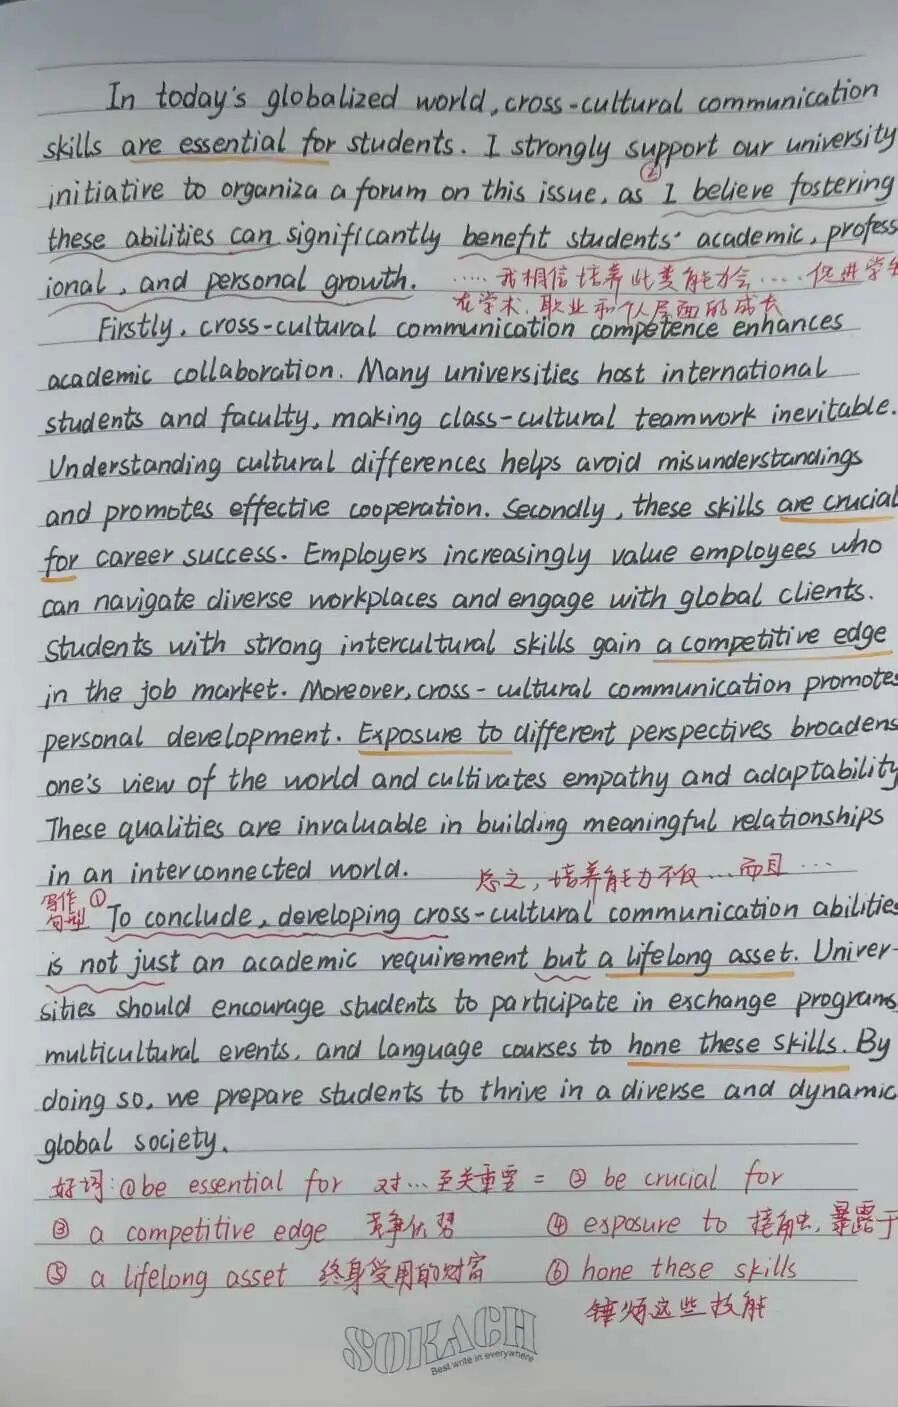 In today's globalized world, cross-cultural communication
skills are essential for students. I strongly support our university
initiative to organiza a forum on this issue, as ② I believe fostering
these abilities can significantly benefit students' academic, profess
ional, and personal growth. ……我相信培养此类能力会……促进学生
在学术、职业和个人层面的成长
Firstly, cross-cultural communication competence enhances
academic collaboration. Many universities host international
students and faculty, making class-cultural teamwork inevitable.
Understanding cultural differences helps avoid misunderstandings
and promotes effective cooperation. Secondly, these skills are crucial
for career success. Employers increasingly value employees who
can navigate diverse workplaces and engage with global clients.
Students with strong intercultural skills gain a competitive edge
in the job market. Moreover, cross-cultural communication promotes
personal development. Exposure to different perspectives broadens
one's view of the world and cultivates empathy and adaptability
These qualities are invaluable in building meaningful relationships
in an interconnected world. 总之，培养能力不仅…而且…
写作 ①
句型 To conclude, developing cross-cultural communication abilities
is not just an academic requirement but a lifelong asset. Univer-
sities should encourage students to participate in exchange programs
multicultural events, and language courses to hone these skills. By
doing so, we prepare students to thrive in a diverse and dynamic
global society.
好词: ① be essential for 对…至关重要 = ② be crucial for
③ a competitive edge 竞争优势 ④ exposure to 接触, 暴露于
⑤ a lifelong asset 终身受用的财富 ⑥ hone these skills
锤炼这些技能
SOKACH
Best write in everywhere